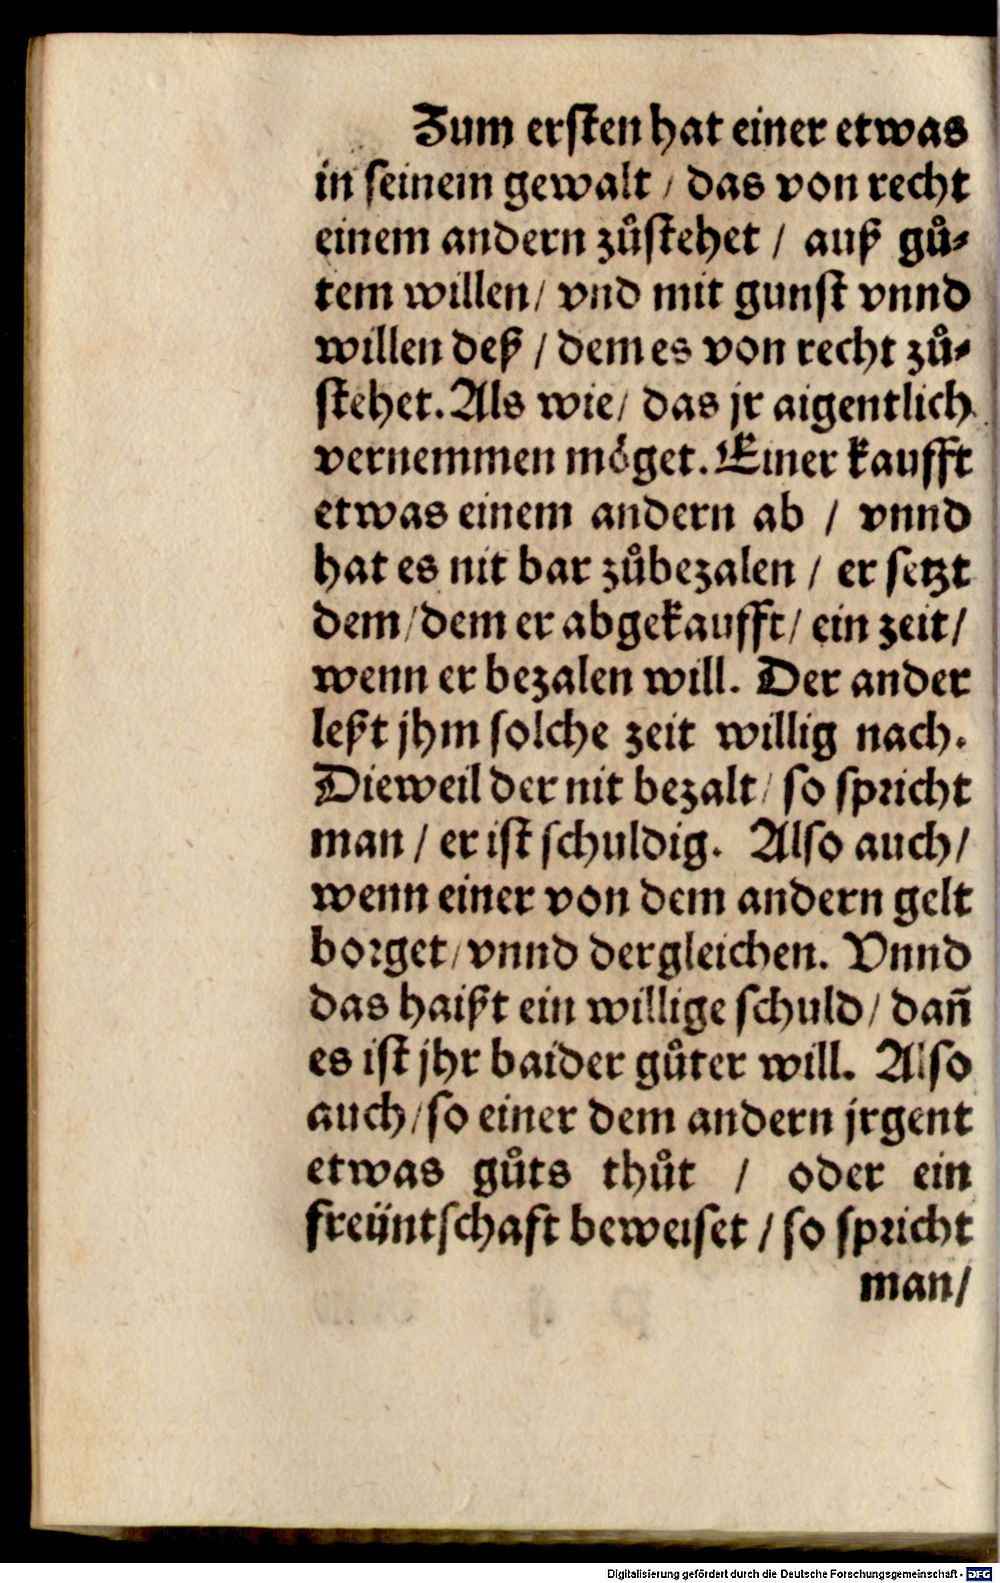 Zum ersten hat einer etwas
in seinem gewalt / das von recht
einem andern zůstehet / auß gů⸗
tem willen / vnd mit gunst vnnd
willen deß / dem es von recht zů⸗
stehet. Als wie / das jr aigentlich
vernemmen möget. Einer kaufft
etwas einem andern ab / vnnd
hat es nit bar zůbezalen / er setzt
dem / dem er abgekaufft / ein zeit /
wenn er bezalen will. Der ander
leßt jhm solche zeit willig nach.
Dieweil der nit bezalt / so spricht
man / er ist schuldig. Also auch /
wenn einer von dem andern gelt
borget / vnnd dergleichen. Vnnd
das haißt ein willige schuld / dañ
es ist jhr baider gůter will. Also
auch / so einer dem andern jrgent
etwas gůts thůt / oder ein
freüntschaft beweiset / so spricht
man /
Digitalisierung gefördert durch die Deutsche Forschungsgemeinschaft - DFG